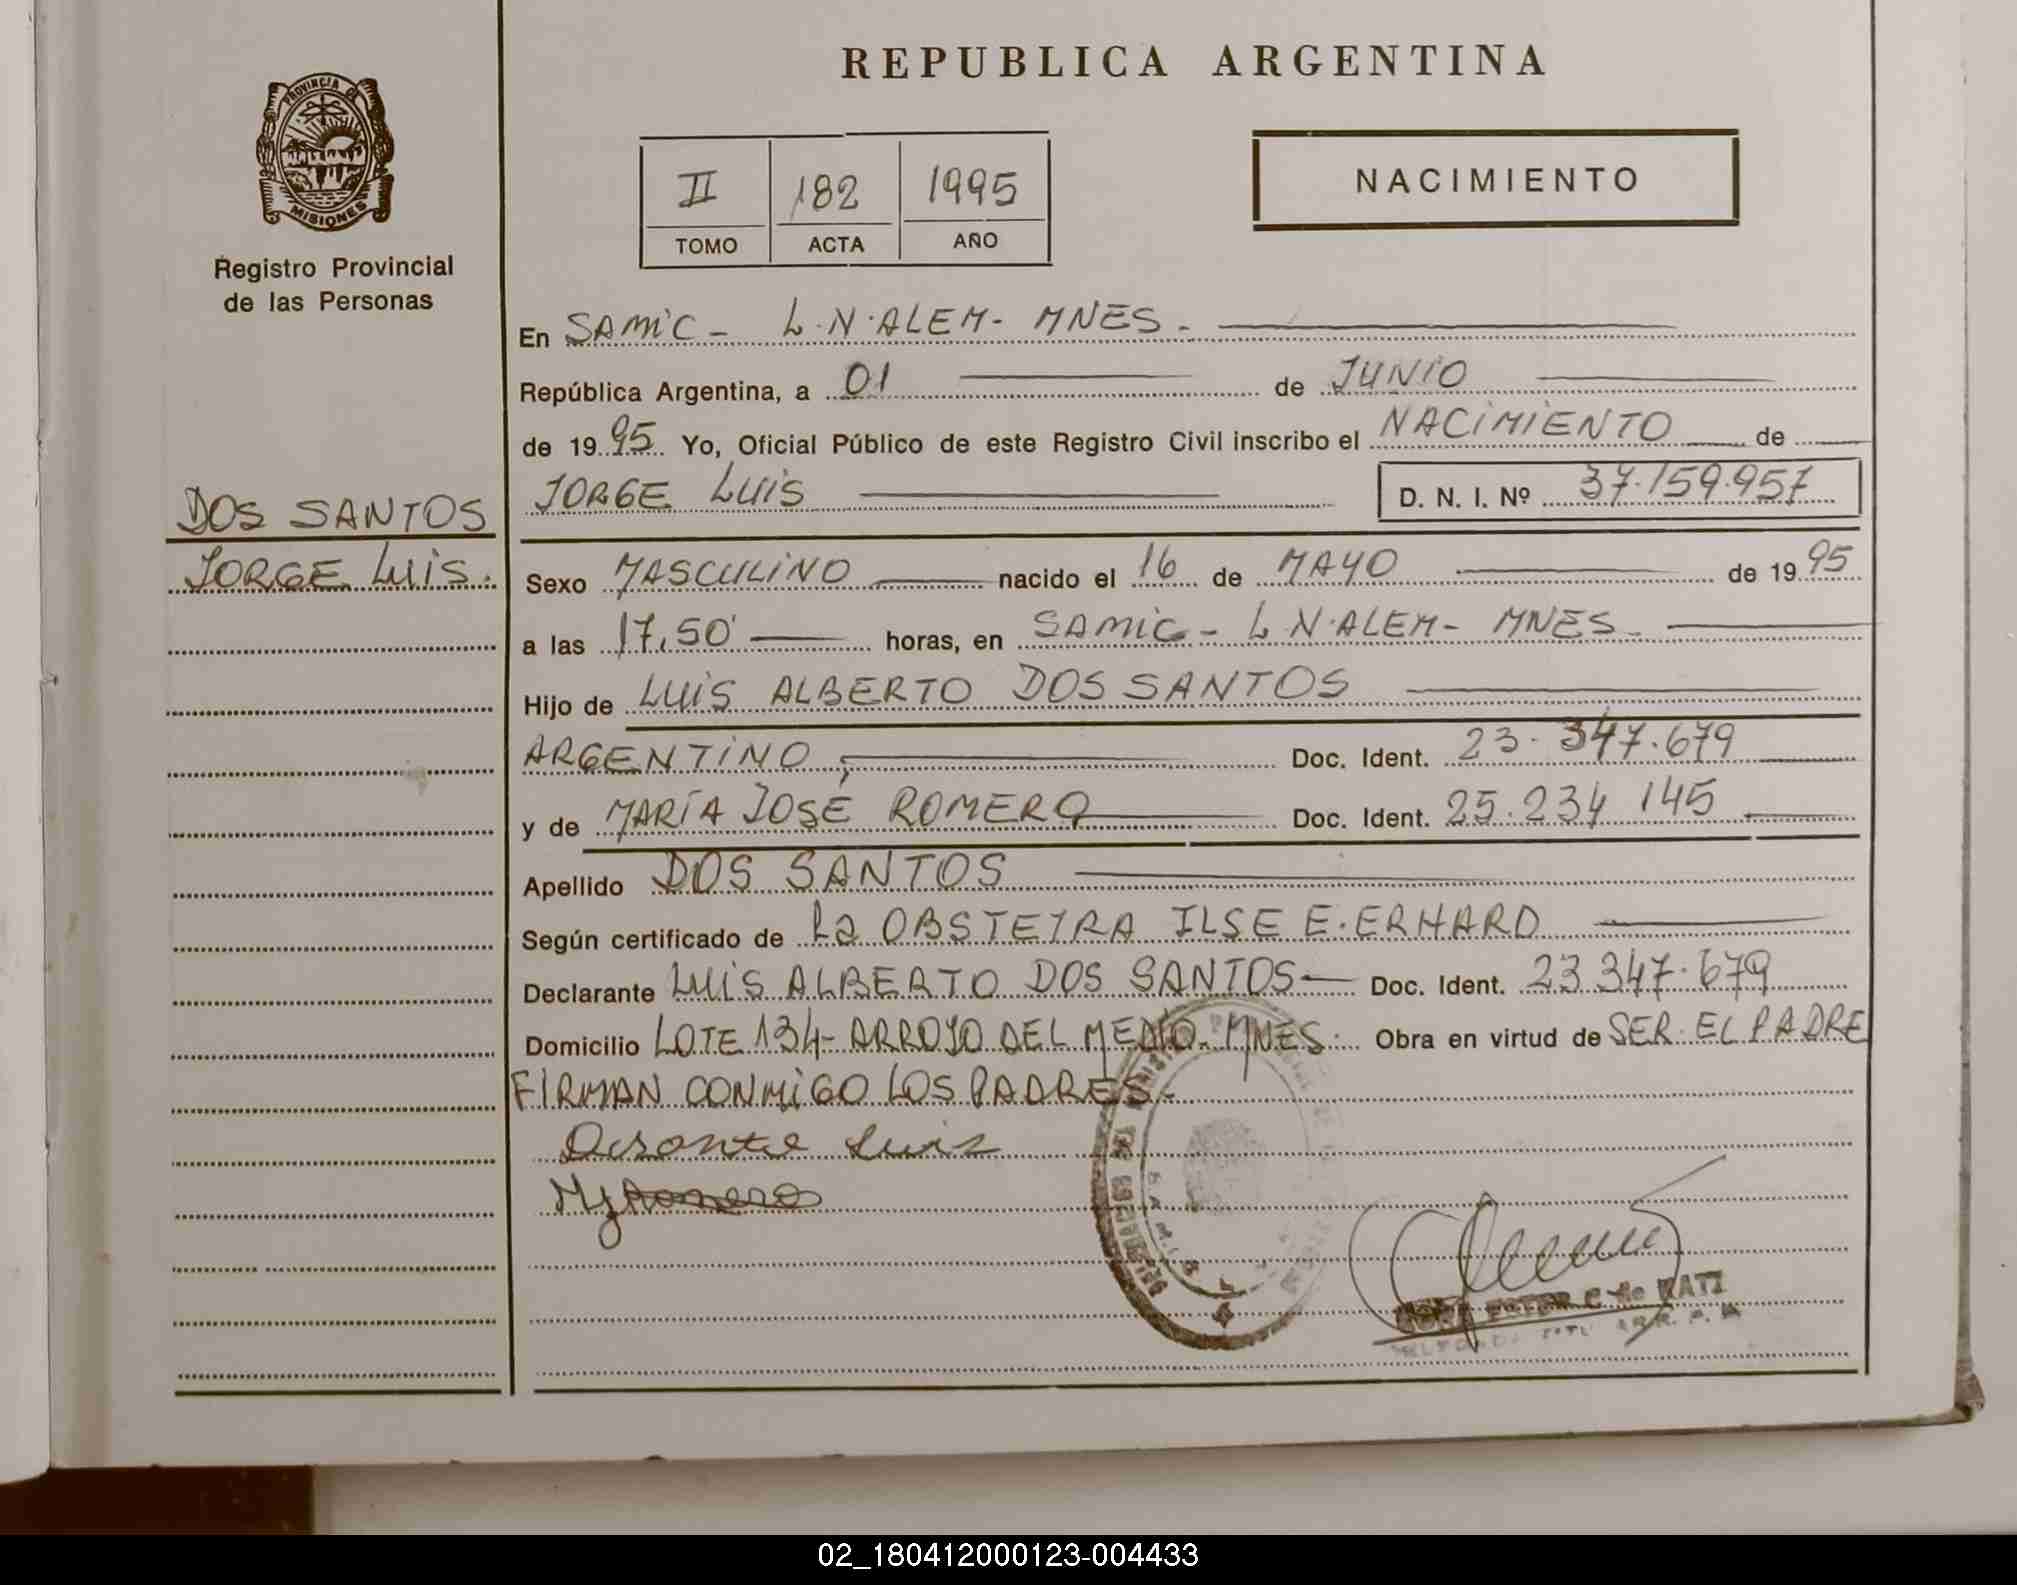 REPUBLICA ARGENTINA
PROVINCIA DE
MISIONES
Registro Provincial
de las Personas
II 182 1995
TOMO ACTA AÑO
NACIMIENTO
En SAMIC - L.N.ALEM - MNES.
República Argentina, a 01 de JUNIO
de 1995 Yo, Oficial Público de este Registro Civil inscribo el NACIMIENTO de
JORGE LUIS D. N. I. Nº 37.159.957
DOS SANTOS
JORGE LUIS.
Sexo MASCULINO nacido el 16 de MAYO de 1995
a las 17,50' horas, en SAMIC - L.N.ALEM - MNES.
Hijo de LUIS ALBERTO DOS SANTOS
ARGENTINO, Doc. Ident. 23.347.679
y de MARÍA JOSÉ ROMERO Doc. Ident. 25.234 145
Apellido DOS SANTOS
Según certificado de La OBSTETRA ILSE E. ERHARD
Declarante LUIS ALBERTO DOS SANTOS Doc. Ident. 23 347.679
Domicilio LOTE 134 - ARROYO DEL MEDIO - MNES. Obra en virtud de SER EL PADRE
FIRMAN CONMIGO LOS PADRES.
Luis
Romero
ESTER C de RATZ
02_180412000123-004433